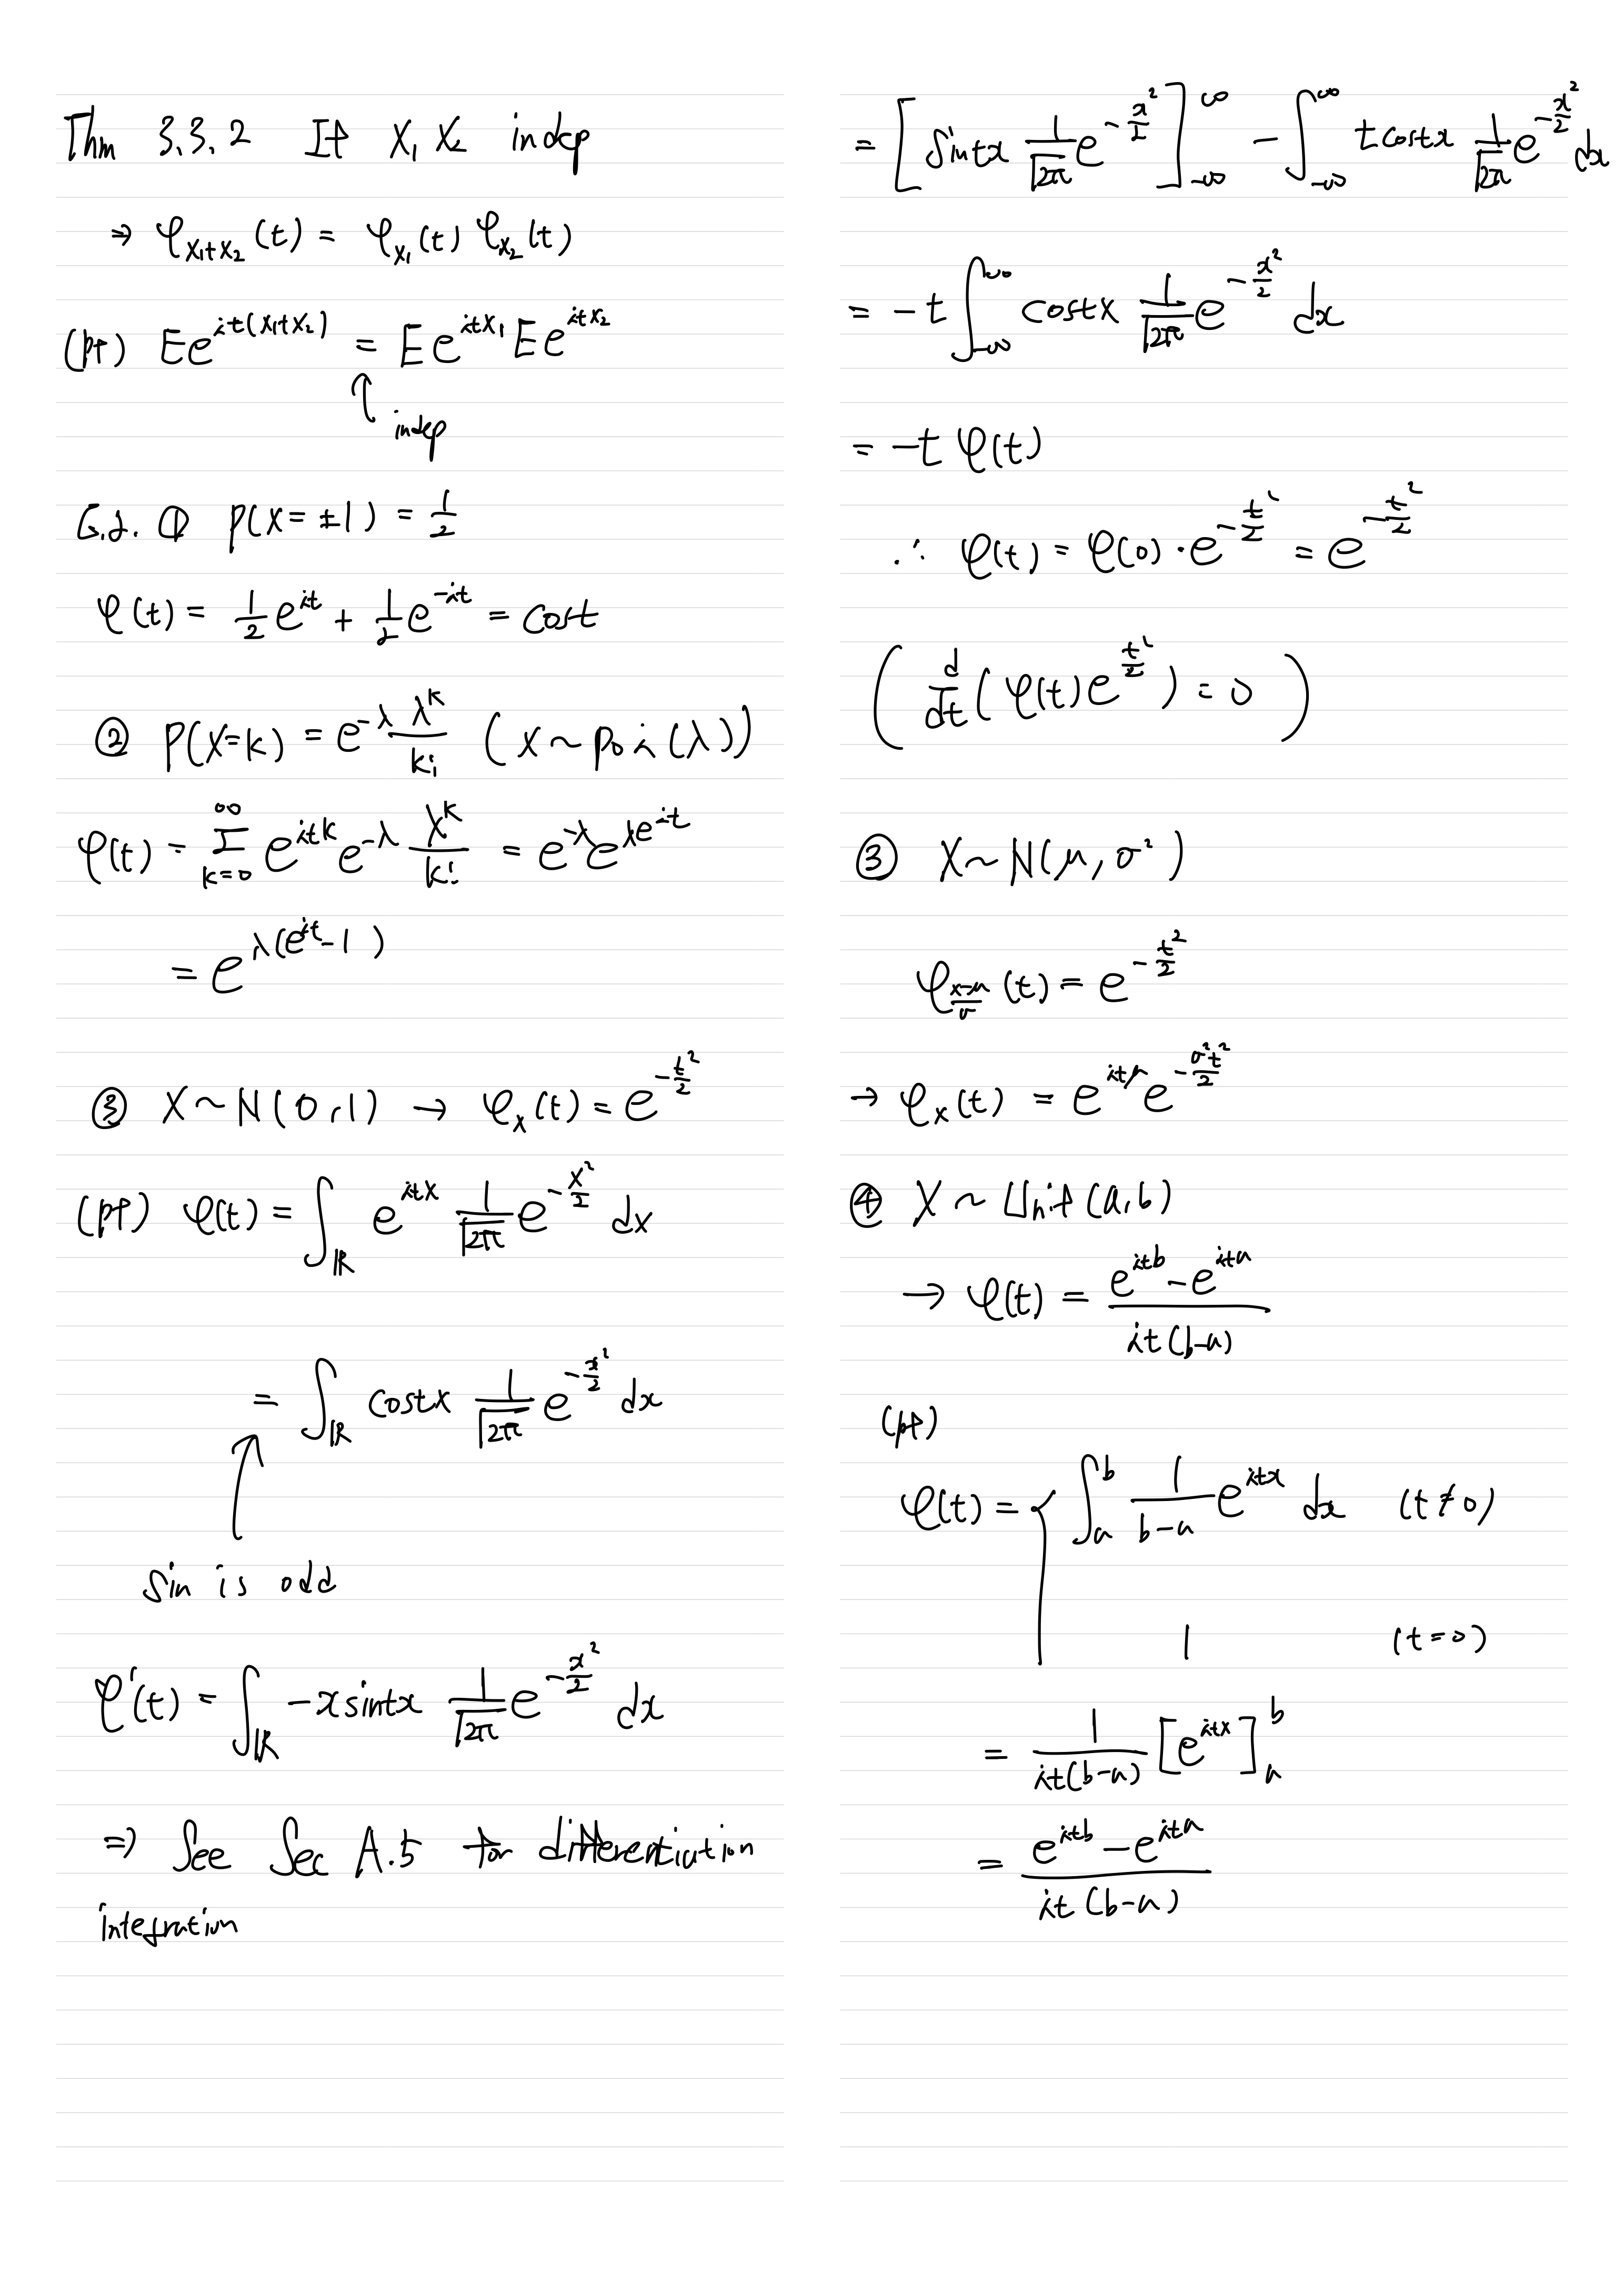 Thm 3.3.2 If X₁ X₂ indep
⇒ φ_{X₁+X₂}(t) = φ_{X₁}(t) φ_{X₂}(t)
(pf) Ee^{it(X₁+X₂)} = Ee^{itX₁} Ee^{itX₂}
↑ indep
e.g. ① P(X=±1) = 1/2
φ(t) = 1/2 e^{it} + 1/2 e^{-it} = cost
② P(X=k) = e^{-λ} λ^k/k! (X ~ poi(λ))
φ(t) = Σ_{k=0}^{∞} e^{itk} e^{-λ} λ^k/k! = e^{-λ}e^{λe^{it}}
= e^{λ(e^{it}-1)}
③ X ~ N(0,1) → φ_X(t) = e^{-t²/2}
(pf) φ(t) = ∫_ℝ e^{itx} 1/√2π e^{-x²/2} dx
= ∫_ℝ costx 1/√2π e^{-x²/2} dx
↑
sin is odd
φ'(t) = ∫_ℝ -x sintx 1/√2π e^{-x²/2} dx
⇒ See Sec A.5 for differentiation
integration
= [sintx 1/√2π e^{-x²/2}]_{-∞}^{∞} - ∫_{-∞}^{∞} t costx 1/√2π e^{-x²/2} dx
= -t ∫_{-∞}^{∞} costx 1/√2π e^{-x²/2} dx
= -t φ(t)
∴ φ(t) = φ(0)·e^{-t²/2} = e^{-t²/2}
( d/dt (φ(t)e^{t²/2}) = 0 )
③ X ~ N(μ, σ²)
φ_{(x-μ)/σ}(t) = e^{-t²/2}
→ φ_X(t) = e^{itμ} e^{-σ²t²/2}
④ X ~ Unif(a,b)
→ φ(t) = (e^{itb} - e^{ita}) / it(b-a)
(pf)
φ(t) = { ∫_a^b 1/(b-a) e^{itx} dx (t≠0)
1 (t=0)
= 1/it(b-a) [e^{itx}]_a^b
= (e^{itb} - e^{ita}) / it(b-a)